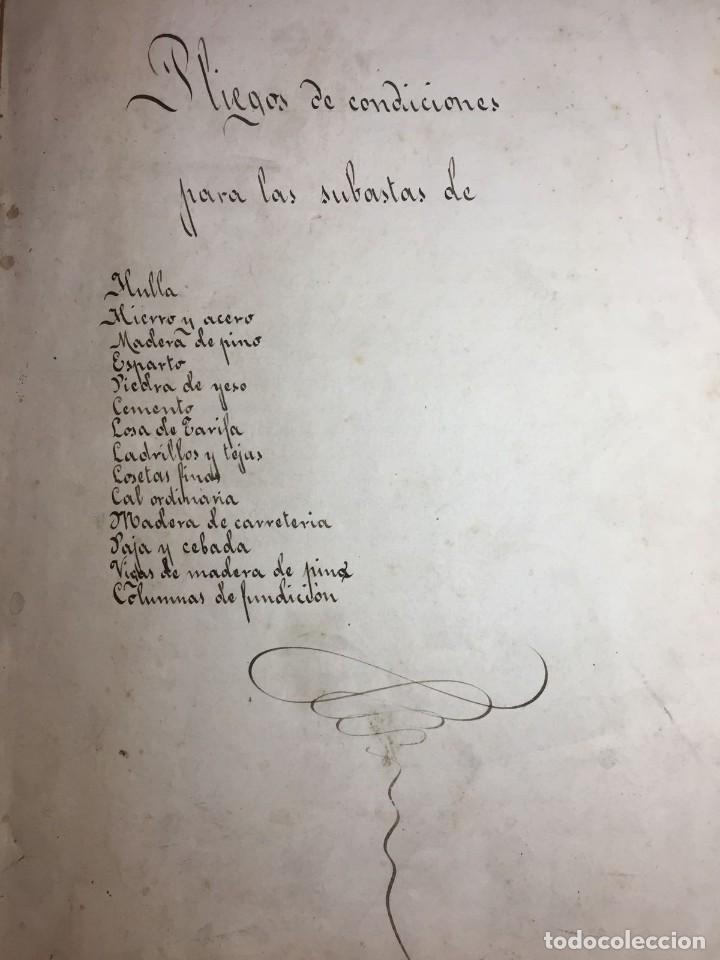 Pliegos de condiciones
para las subastas de
Hulla
Hierro y acero
Madera de pino
Esparto
Piedra de yeso
Cemento
Losa de Tarifa
Ladrillos y tejas
Losetas finas
Cal ordinaria
Madera de carreteria
Paja y cebada
Vigas de madera de pino
Columnas de fundición
todocoleccion